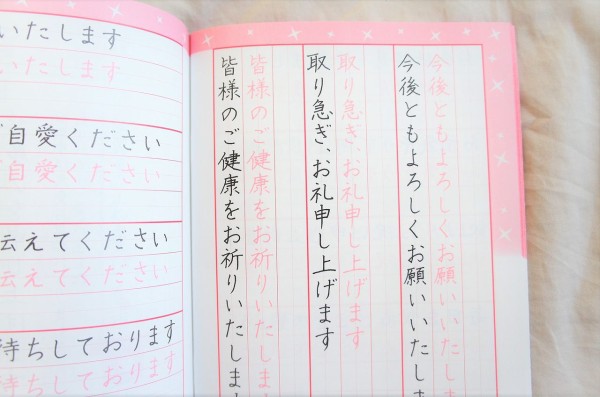 いたします
いたします
自愛ください
ご自愛ください
伝えてください
伝えてください
待ちしております
待ちしております
今後ともよろしくお願いいたしま
今後ともよろしくお願いいたしま
取り急ぎ、お礼申し上げます
取り急ぎ、お礼申し上げます
皆様のご健康をお祈りいたしま
皆様のご健康をお祈りいたしま